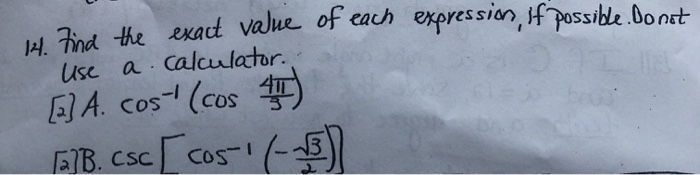 14. Find the exact value of each expression, if possible. Do not
Use a calculator.
[2] A. cos⁻¹ (cos 4π/3)
[2] B. csc [cos⁻¹ (-√3/2)]